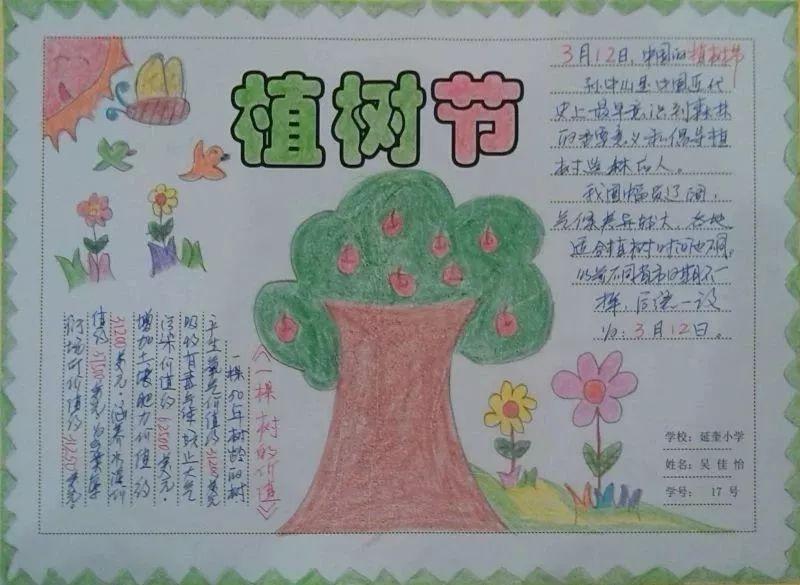 植树节
3月12日,中国的植树节
孙中山是中国近代
史上最早意识到森林
的重要意义和倡导植
树造林的人。
我国幅员辽阔,
气候差异较大,各地
适合植树时间也不同,
以前不同省市日期不一
样,后统一设
为:3月12日。
《一棵树的价值》
一棵50年树龄的树
产生氧气价值约31200美元
吸收有毒气体防止大气
污染价值约62500美元
增加土壤肥力价值约
31200美元,涵养水源价
值约37500美元,为鸟类等
环境价值约31250美元。
学校: 延奎小学
姓名: 吴佳怡
学号: 17号